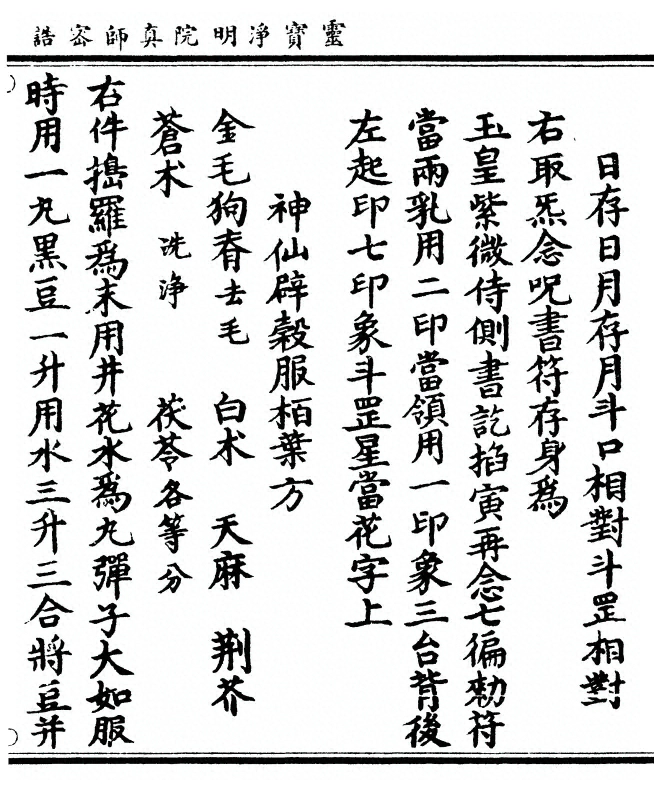 靈寶淨明院真師密誥
日存日月存月斗口相對斗罡相對
右取炁念呪書符存身為
玉皇紫微侍側書訖掐寅再念七徧勑符
當兩乳用二印當領用一印象三台背後
左起印七印象斗罡星當花字上
神仙辟榖服栢葉方
金毛狗脊去毛 白术 天麻 荆芥
蒼术 洗淨 茯苓各等分
右件搗羅爲末用井花水爲丸彈子大如服
時用一丸黑豆一升用水三升三合將豆并